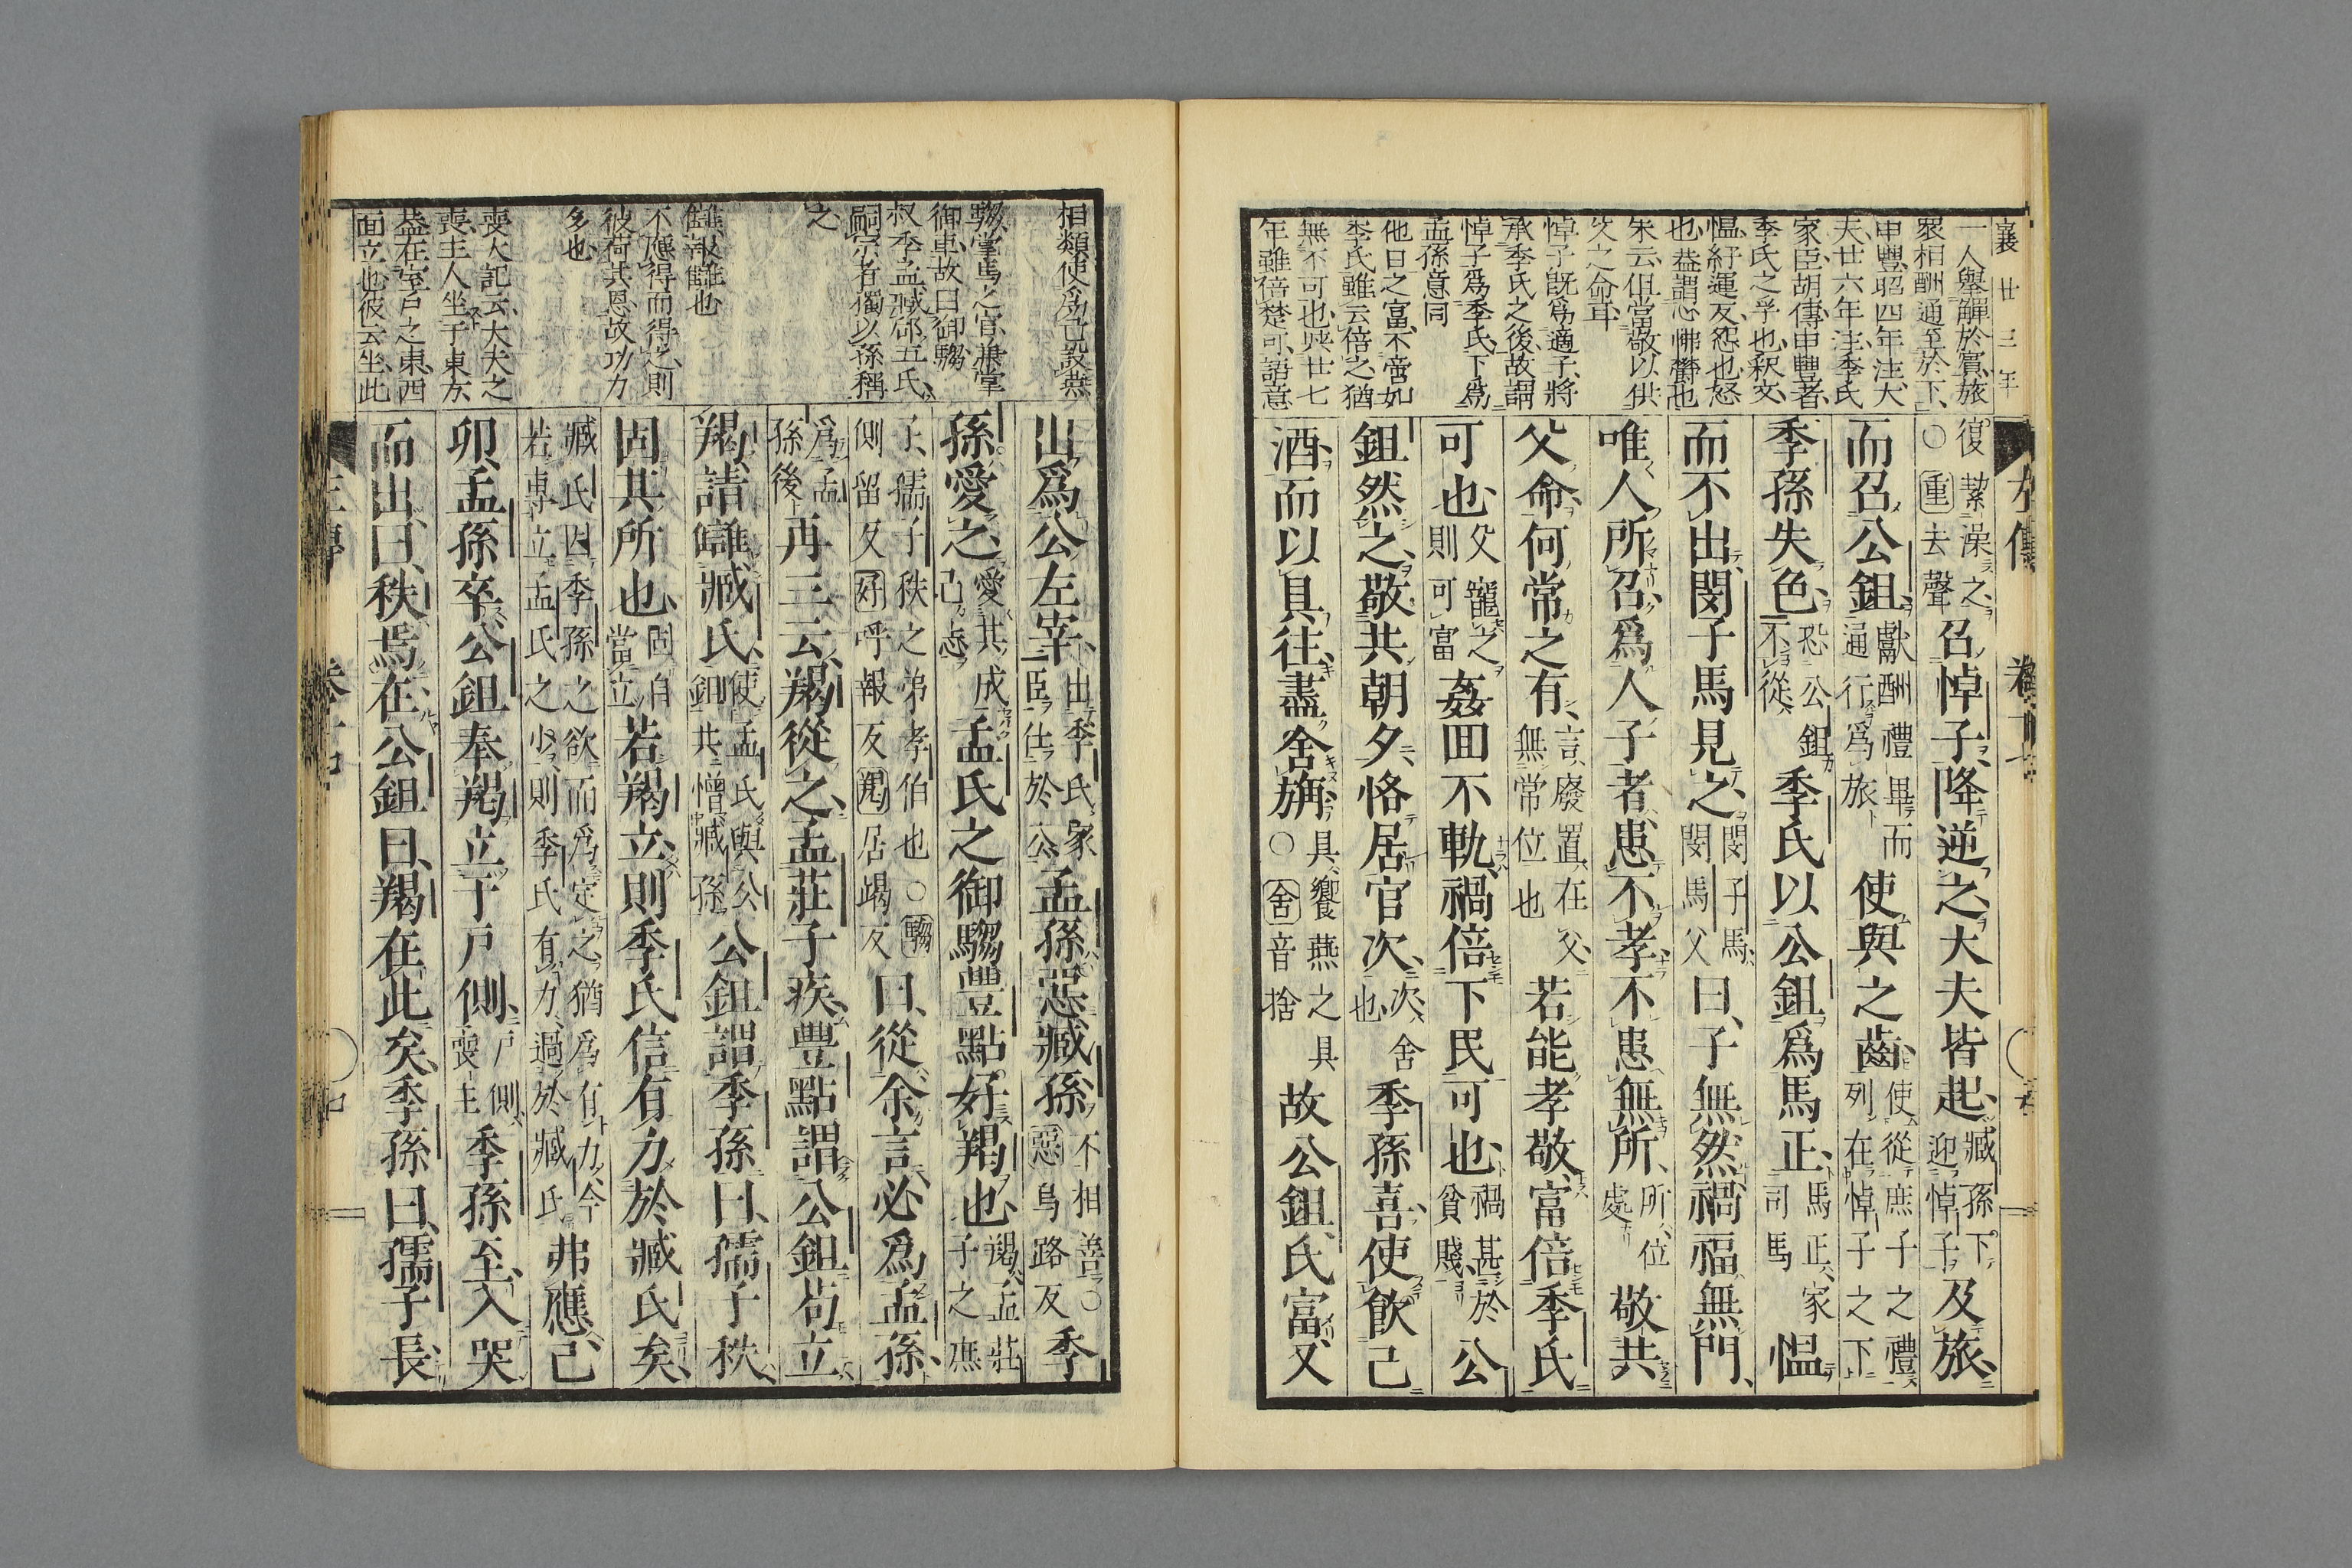 襄廿三年
一人舉觶於賓旅
衆相酬通至於下
申豐昭四年注大
夫廿六年注季氏
家臣胡傳申豐者
季氏之孚也釈文
慍紆運反怨也怒
也益謂忿怫欝也
朱云但當敬以供
父之命耳
悼子既爲適子將
承季氏之後故謂
悼子爲季氏下爲
孟孫意同
他日之富不啻如
季氏雖云倍之猶
無不可也昃廿七
年雖倍楚可語意
左傳 卷十七
復絜澡之○重去聲召悼子降逆之大夫皆起臧孫下迎悼子及旅
而召公鉏獻酬禮畢而通行爲旅使與之齒使從庶子之禮列在悼子之下
季孫失色恐公鉏不從季氏以公鉏爲馬正馬正家司馬慍
而不出閔子馬見之閔子馬閔馬父曰子無然禍福無門
唯人所召爲人子者患不孝不患無所所位處敬共
父命何常之有言廢置在父無常位也若能孝敬富倍季氏
可也父寵之則可富姦回不軌禍倍下民可也禍甚於貧賤公
鉏然之敬共朝夕恪居官次次舍也季孫喜使飮己
酒而以具往盡舍旃具饗燕之具○舍音捨故公鉏氏富又
相類使爲立設燕
騶掌馬之官兼掌
御車故曰御騶
叔季孟臧郈五氏
嗣宗者獨以孫稱
之
讎報讎也
不應得而得之則
彼荷其恩故功力
多也
喪大記云大夫之
喪主人坐于東方
葢在室戸之東西
面立也彼云坐此
出爲公左宰出季氏家臣仕於公孟孫惡臧孫不相善○惡烏路反季
孫愛之愛其成己志孟氏之御騶豐點好羯也羯孟莊子之庶
子孺子秩之弟孝伯也○騶側留反好呼報反羯居謁反曰從余言必爲孟孫
爲孟孫後再三云羯從之孟莊子疾豐點謂公鉏苟立
羯請讎臧氏使孟氏與公鉏共憎臧孫公鉏謂季孫曰孺子秩
固其所也固自當立若羯立則季氏信有力於臧氏矣
臧氏因季孫之欲而爲定之猶爲有力今若専立孟氏之少則季氏有力過於臧氏弗應己
卯孟孫卒公鉏奉羯立于戸側戸側喪主季孫至入哭
而出曰秩焉在公鉏曰羯在此矣季孫曰孺子長